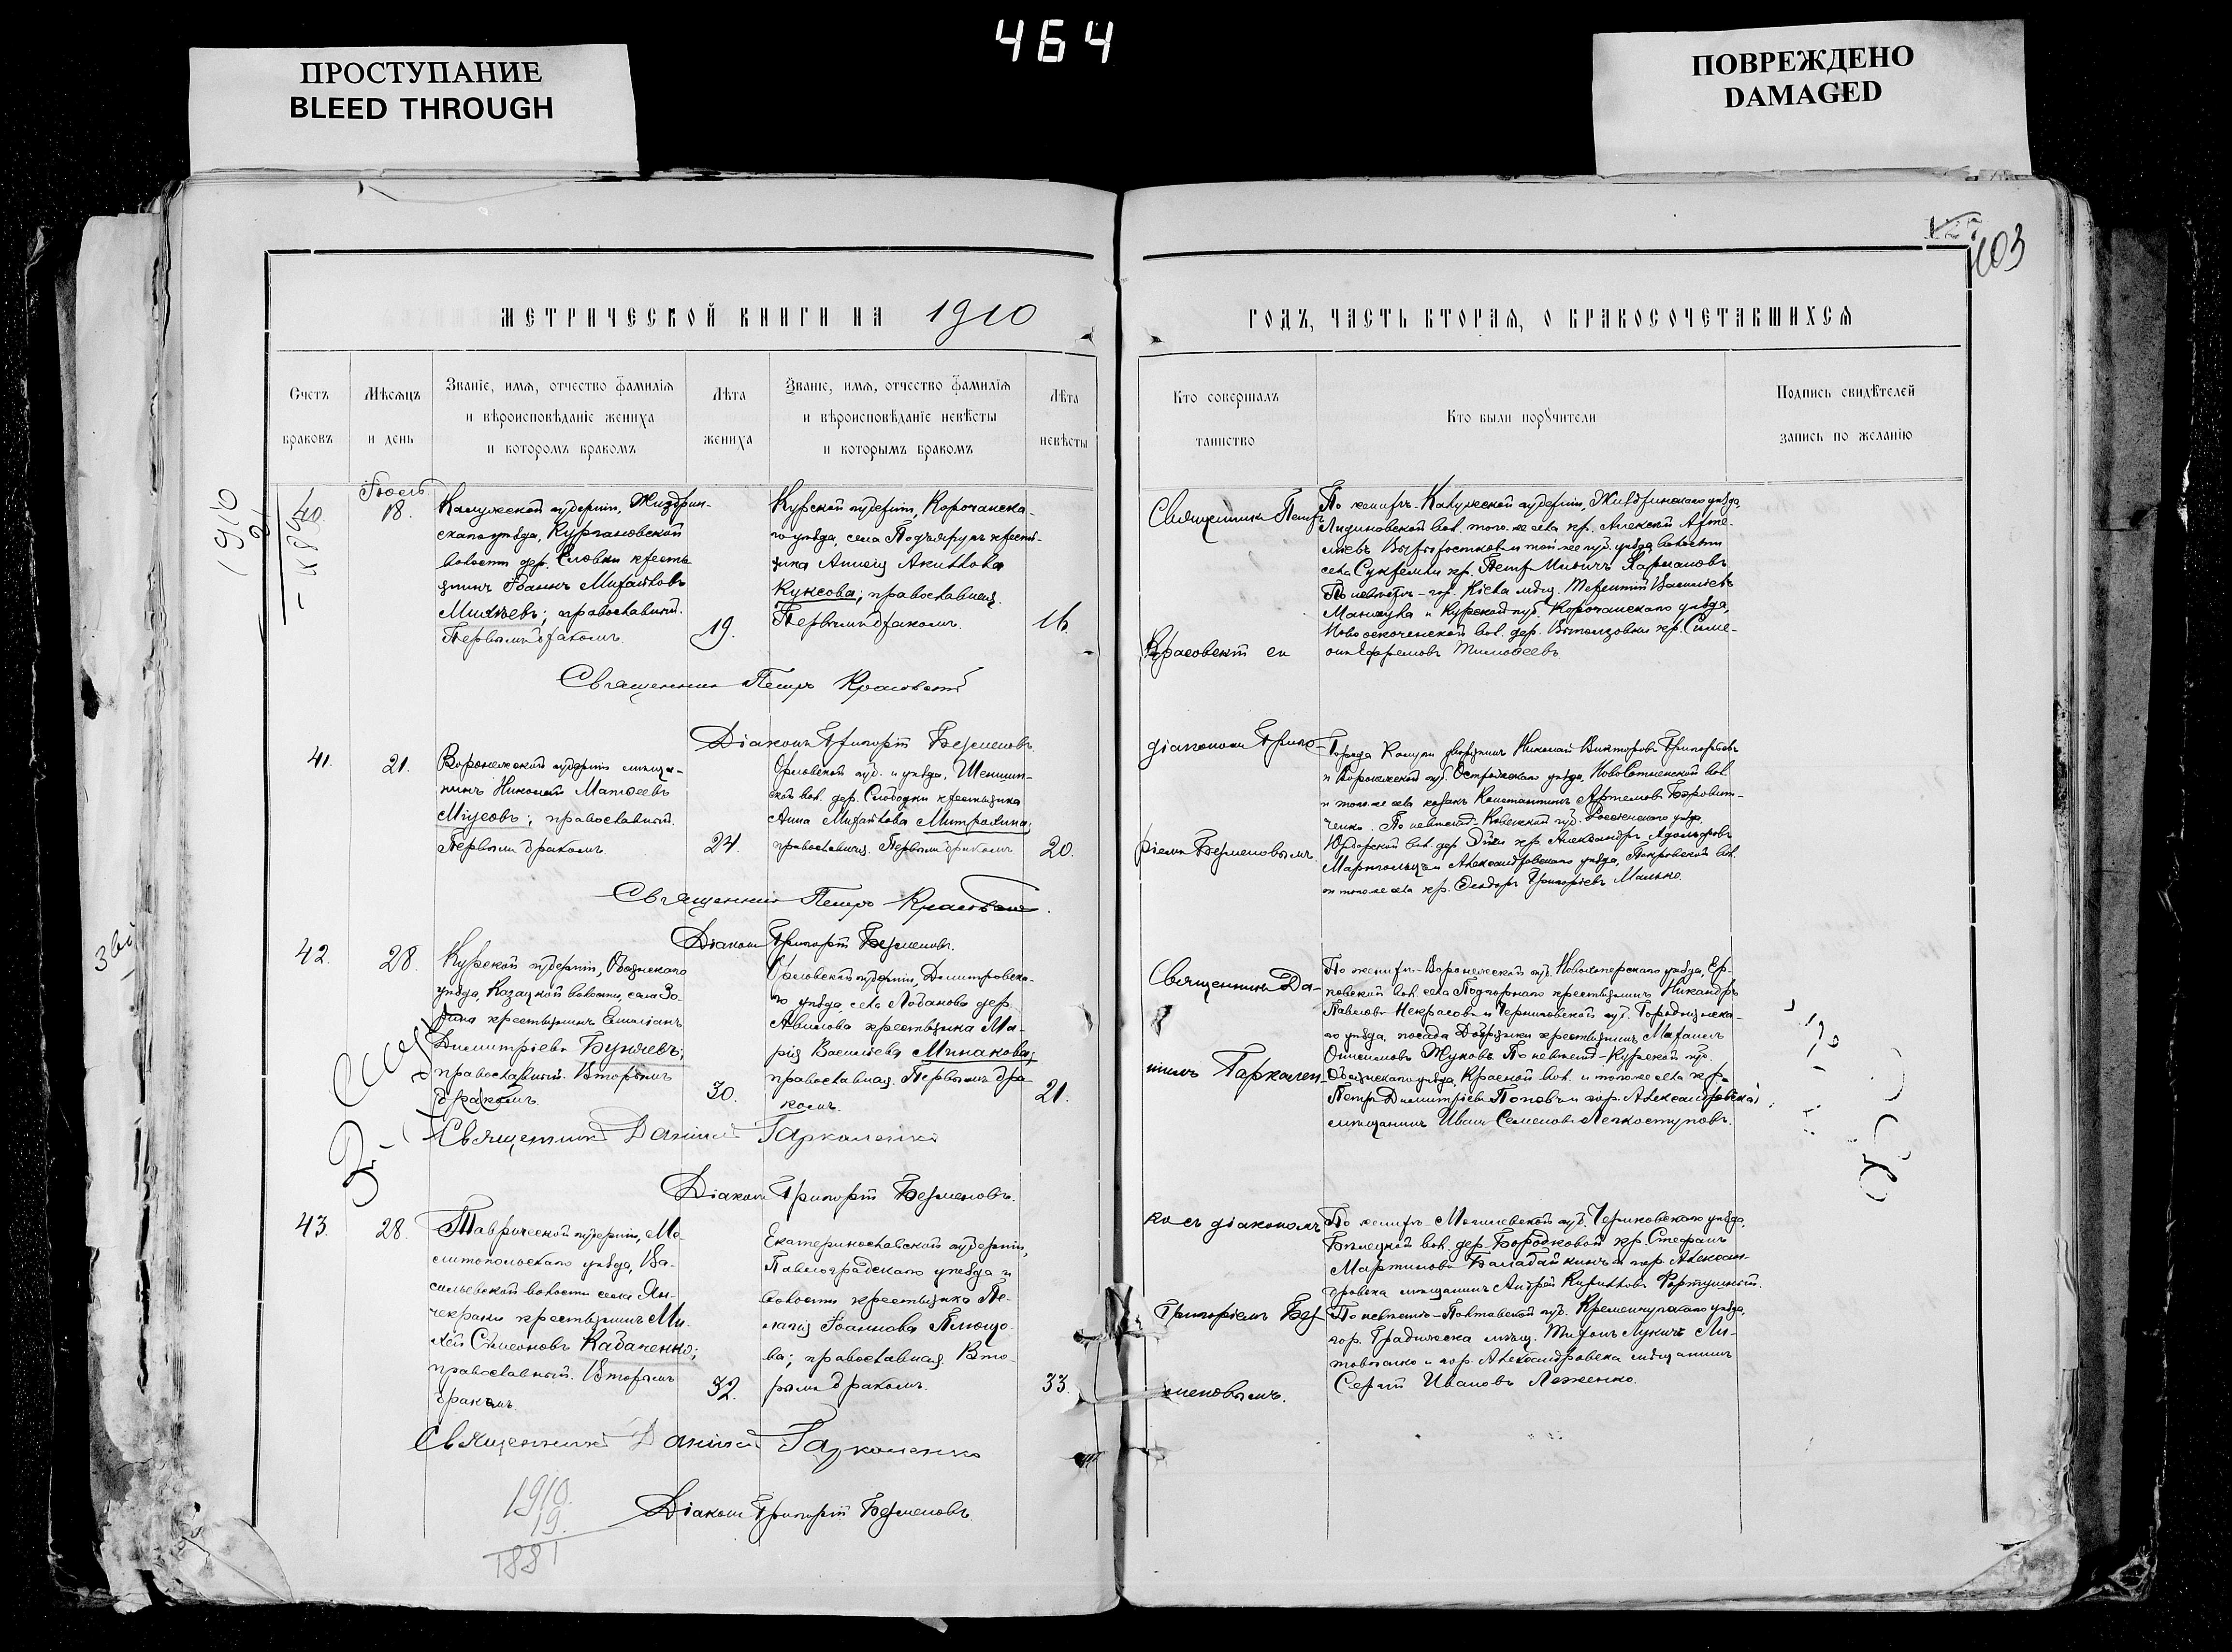 464
ПРОСТУПАНИЕ
BLEED THROUGH
ПОВРЕЖДЕНО
DAMAGED
127
103
МЕТРИЧЕСКОЙ КНИГИ НА 1910
ГОДЪ, ЧАСТЬ ВТОРАЯ, О БРАКОСОЧЕТАВШИХСЯ
Счетъ
браковъ
Мѣсяцъ
и день
Званіе, имя, отчество фамилія
и вѣроисповѣданіе жениха
и которомъ бракомъ
Лѣта
жениха
Званіе, имя, отчество фамилія
и вѣроисповѣданіе невѣсты
и которымъ бракомъ
Лѣта
невѣсты
Кто совершалъ
таинство
Кто были поручители
Подпись свидѣтелей
запись по желанію
1910
40.
18.
Калужской губерніи, Жиздрин-
скаго уѣзда,
волости дер. кресть
янинъ Іоаннъ Михайловъ
православный.
Первымъ бракомъ.
19.
Курской губерніи, Корочанска-
го уѣзда, села кресть-
янка Акилова
Куксова; православная.
Первымъ бракомъ.
16.
Священникъ Петръ
Красовскій съ
По женихѣ - Калужской губерніи, Жиздринскаго уѣзда,
вол. того же села кр. Алексѣй Арте-
той же губ. уѣзда, волости
кр. Петръ
По невѣстѣ - гор. Кіева мѣщ. Терентій Васильевъ
и Курской губ. Корочанскаго уѣзда,
вол. дер. кр. Симе-
онъ Ефремовъ Тимофеевъ.
Священникъ Петръ Красовскій
Діаконъ Григорій Безменовъ.
41.
21.
Воронежской губерніи мѣща-
нинъ Николай Матѳеевъ
Міусовъ; православный.
Первымъ бракомъ.
24.
Орловской губ. и уѣзда,
ской вол. дер. Слободки крестьянка
Анна Михайлова Митрохина;
православная. Первымъ бракомъ.
20.
діакономъ Григо-
ріемъ Безменовымъ.
Города Калуги дворянинъ Николай Викторовъ Григорьевъ
и Воронежской губ. Острожскаго уѣзда, Новосотненской вол.
и того же села козакъ Константинъ Артемовъ
По невѣстѣ - Ковенской губ. Россіенскаго уѣзда,
вол. дер. кр. Александръ Адольфовъ
и Александровскаго уѣзда, Покровской вол.
и того же села кр. Ѳеодоръ Григорьевъ Малько.
Священникъ Петръ Красовскій.
Діаконъ Григорій Безменовъ.
42.
28.
Курской губерніи, Обоянскаго
уѣзда, Казацкой волости, села
крестьянинъ Емиліанъ
Димитріевъ Бунаевъ;
православный. Вторымъ
бракомъ.
30.
Орловской губерніи, Дмитровска-
го уѣзда, села Лобаново дер.
крестьянка Ма-
рія Васильева Минакова;
православная. Первымъ бра-
комъ.
21.
Священникъ Да-
ніилъ Гаркален-
По женихѣ - Воронежской губ. Новохоперскаго уѣзда,
вол. села Подгорнаго крестьянинъ Никандръ
Павловъ Некрасовъ и Черниговской губ. Городнянска-
го уѣзда, посада Добрянки крестьянинъ Михаилъ
Онисимовъ Жуковъ. По невѣстѣ - Курской губ.
Обоянскаго уѣзда, Красной вол. и того же села кр.
Петръ Димитріевъ Поповъ и гор. Александровска
мѣщанинъ Иванъ Семеновъ Легкоступовъ.
Священникъ Даніилъ Гаркаленко
Діаконъ Григорій Безменовъ.
43.
28.
Таврической губерніи, Ме-
литопольскаго уѣзда, Ва-
сильевской волости села Ян-
чекракъ крестьянинъ Ми-
хей Симеоновъ Кабаченко;
православный. Вторымъ
бракомъ.
32.
Екатеринославской губерніи,
Павлоградскаго уѣзда и
волости крестьянка Пе-
лагія Іоаннова
православная. Вто-
рымъ бракомъ.
33.
ко съ діакономъ
Григоріемъ Без-
меновымъ.
По женихѣ - Могилевской губ. Чериковскаго уѣзда,
вол. дер. Бородковой кр. Стефанъ
Мартиновъ Балабайкинъ и гор. Алексан-
дровска мѣщанинъ Андрей Кирилловъ
По невѣстѣ - Полтавской губ. Кременчугскаго уѣзда,
гор. Градижска мѣщ. Тихонъ Лукичъ Ли-
и гор. Александровска мѣщанинъ
Сергій Ивановъ Леженко.
Священникъ Даніилъ Гаркаленко
Діаконъ Григорій Безменовъ.
1910.
19.
1881